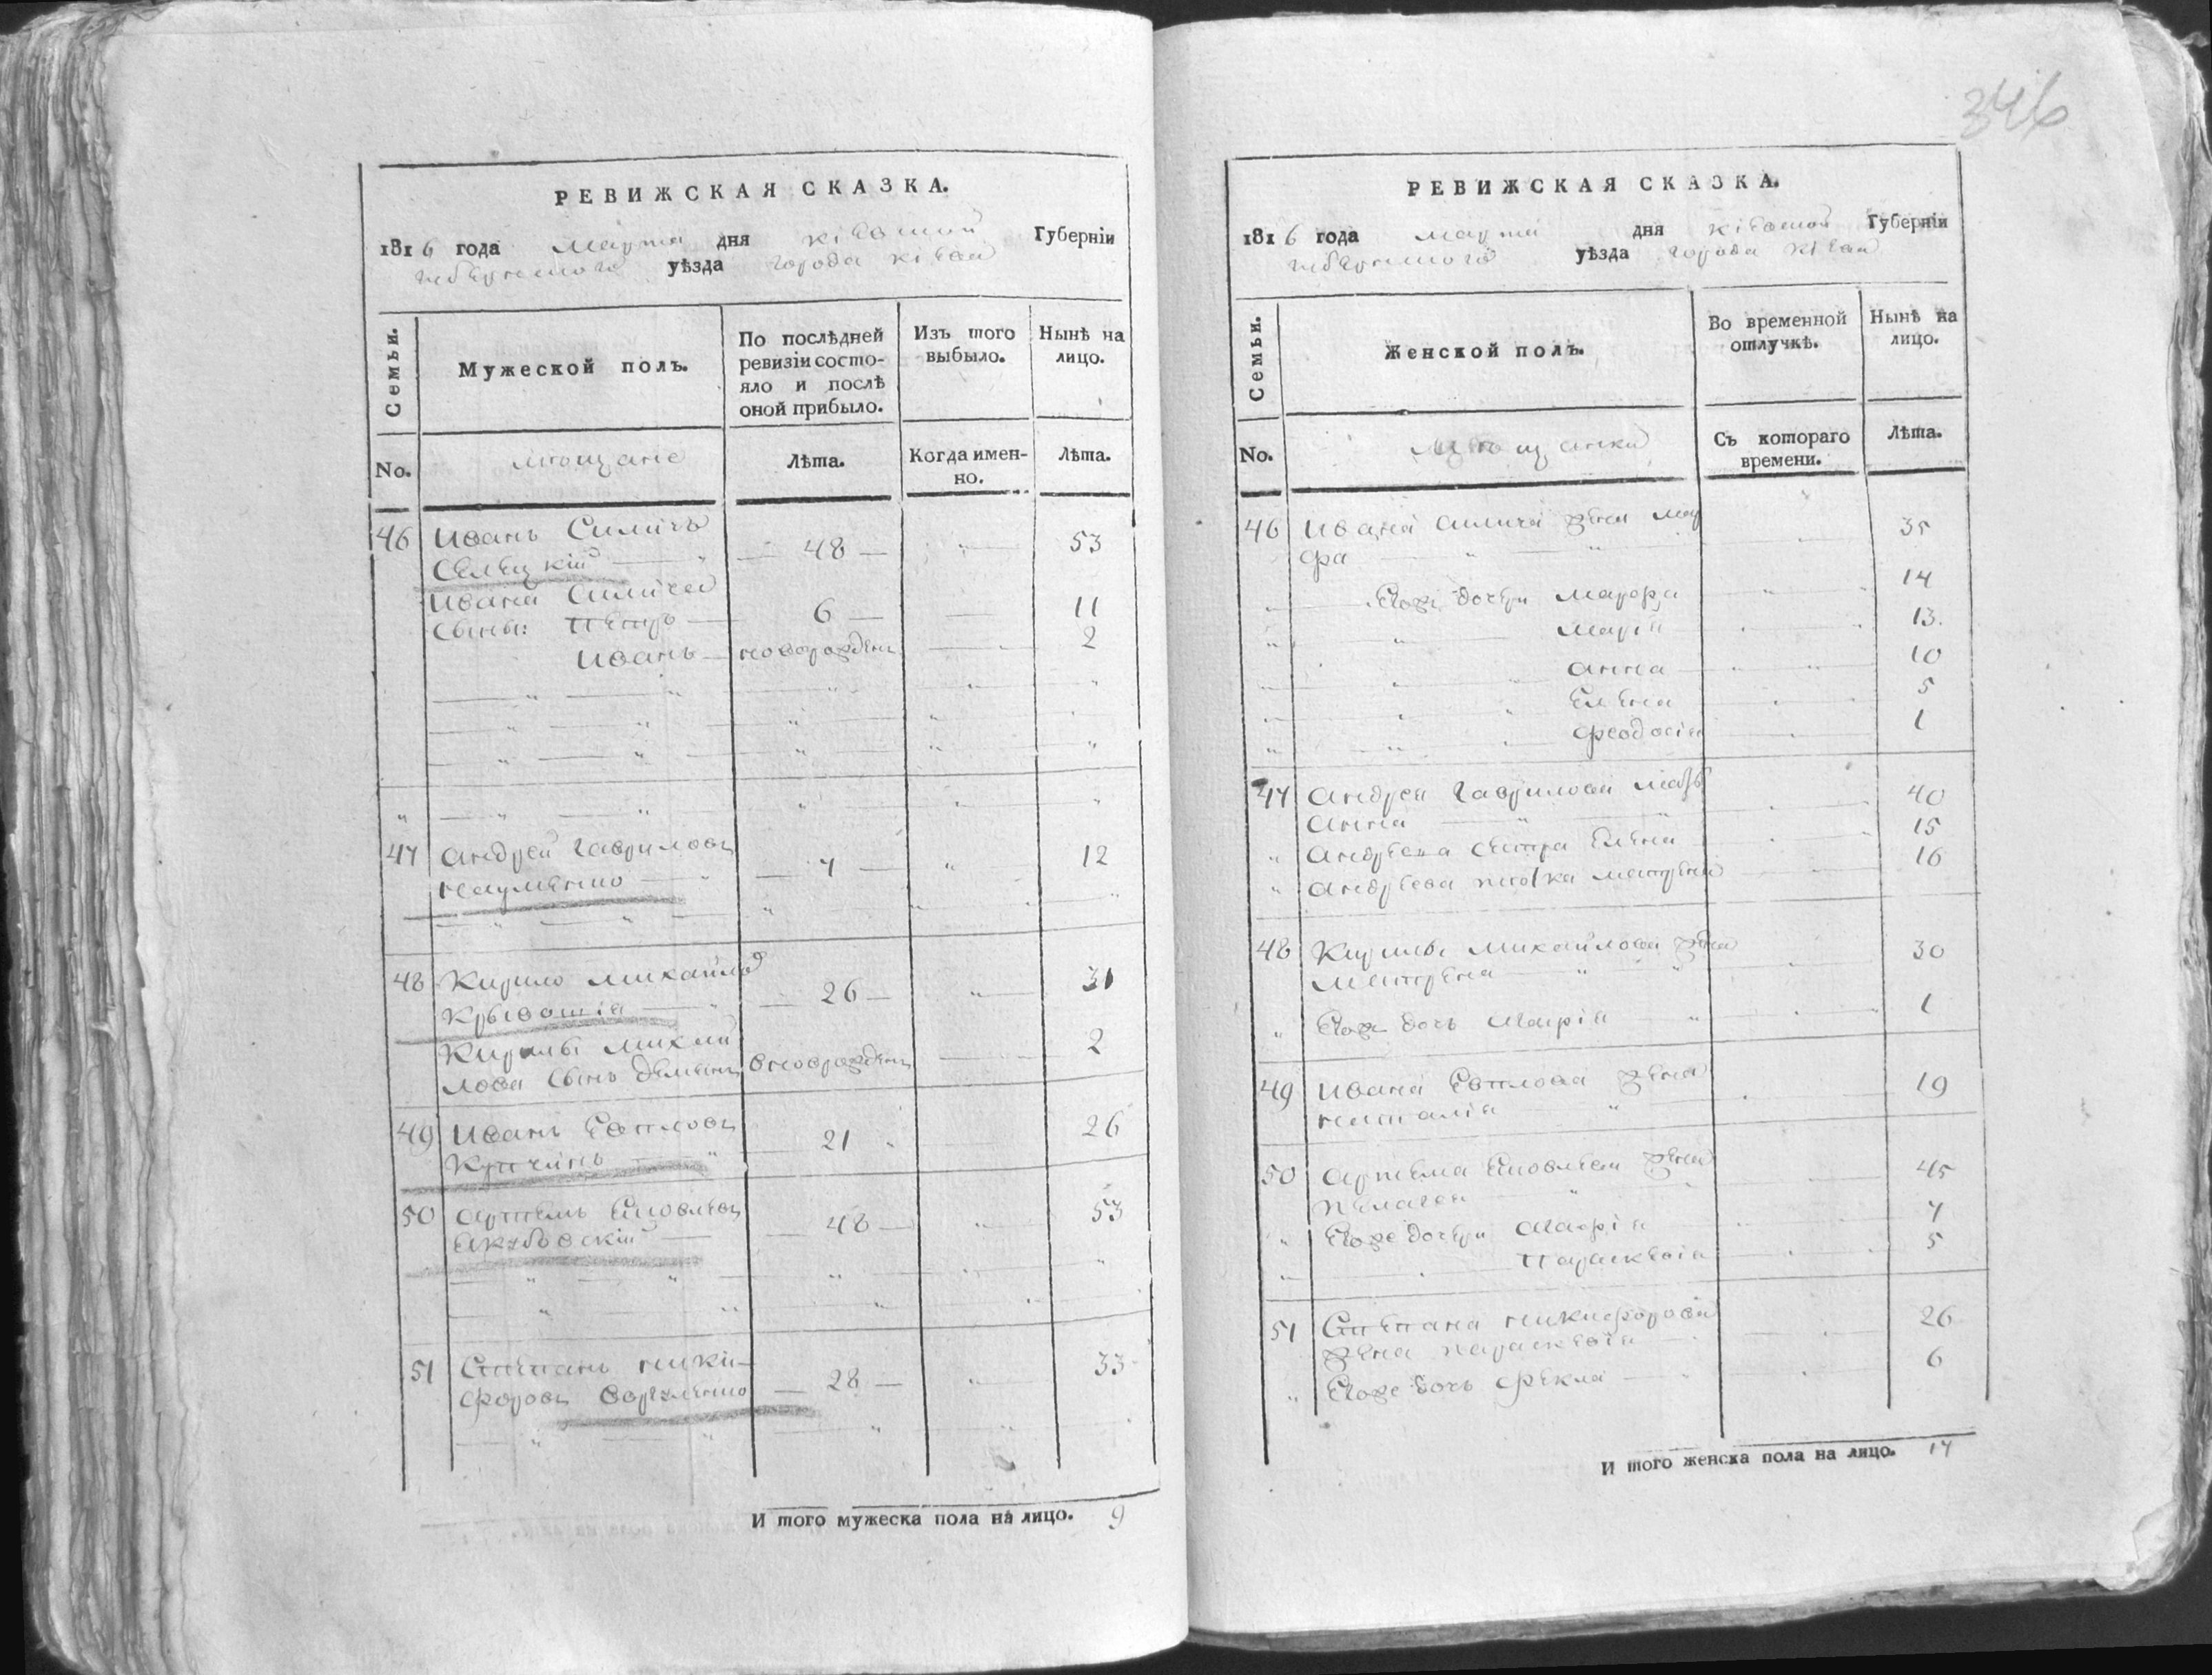 346
РЕВИЖСКАЯ СКАЗКА.
1816 года Марта дня Кіевской Губерніи
уѣзда города Кіева
Семьи.
Мужеской полъ.
По послѣдней ревизіи состо-
яло и послѣ
оной прибыло.
Изъ того выбыло.
Нынѣ на лицо.
No.
мѣщане
Лѣта.
Когда имен-
но.
Лѣта.
46 Иванъ Силичъ
Селецкій 48 53
Ивана Силича
сыны: Петръ 6 11
Иванъ новорожденъ 2
47 Андрей Гавриловъ
Науменко 7 12
48 Кирило Михайловъ
26 31
Кирилы Михай
лова сынъ новорожденъ 2
49 Иванъ Евпловъ
Купчинъ 21 26
50 Артемъ
48 53
51 Степанъ Ники-
форовъ 28 33
И того мужеска пола на лицо. 9
РЕВИЖСКАЯ СКАЗКА.
1816 года Марта дня Кіевской Губерніи
уѣзда города Кіева
Семьи.
Женской полъ.
Во временной отлучкѣ.
Нынѣ на лицо.
No.
Мѣщанки
Съ котораго времени.
Лѣта.
46 Ивана Силича жена Мар
фа 35
Егоже дочери Марфа 14
Марія 13
Анна 10
Елена 5
Феодосія 1
47 Андрея Гаврилова мать
Анна 40
Андреева сестра Елена 15
Андреева тіотка Матрена 16
48 Кирилы Михайлова жена
Матрена 30
Егоже дочь Марія 1
49 Ивана Евплова жена
Наталія 19
50 Артема жена
Пелагея 45
Егоже дочери Марія 7
Параскевія 5
51 Степана Никифорова
жена Параскевія 26
Егоже дочь Фекла 6
И того женска пола на лицо. 17